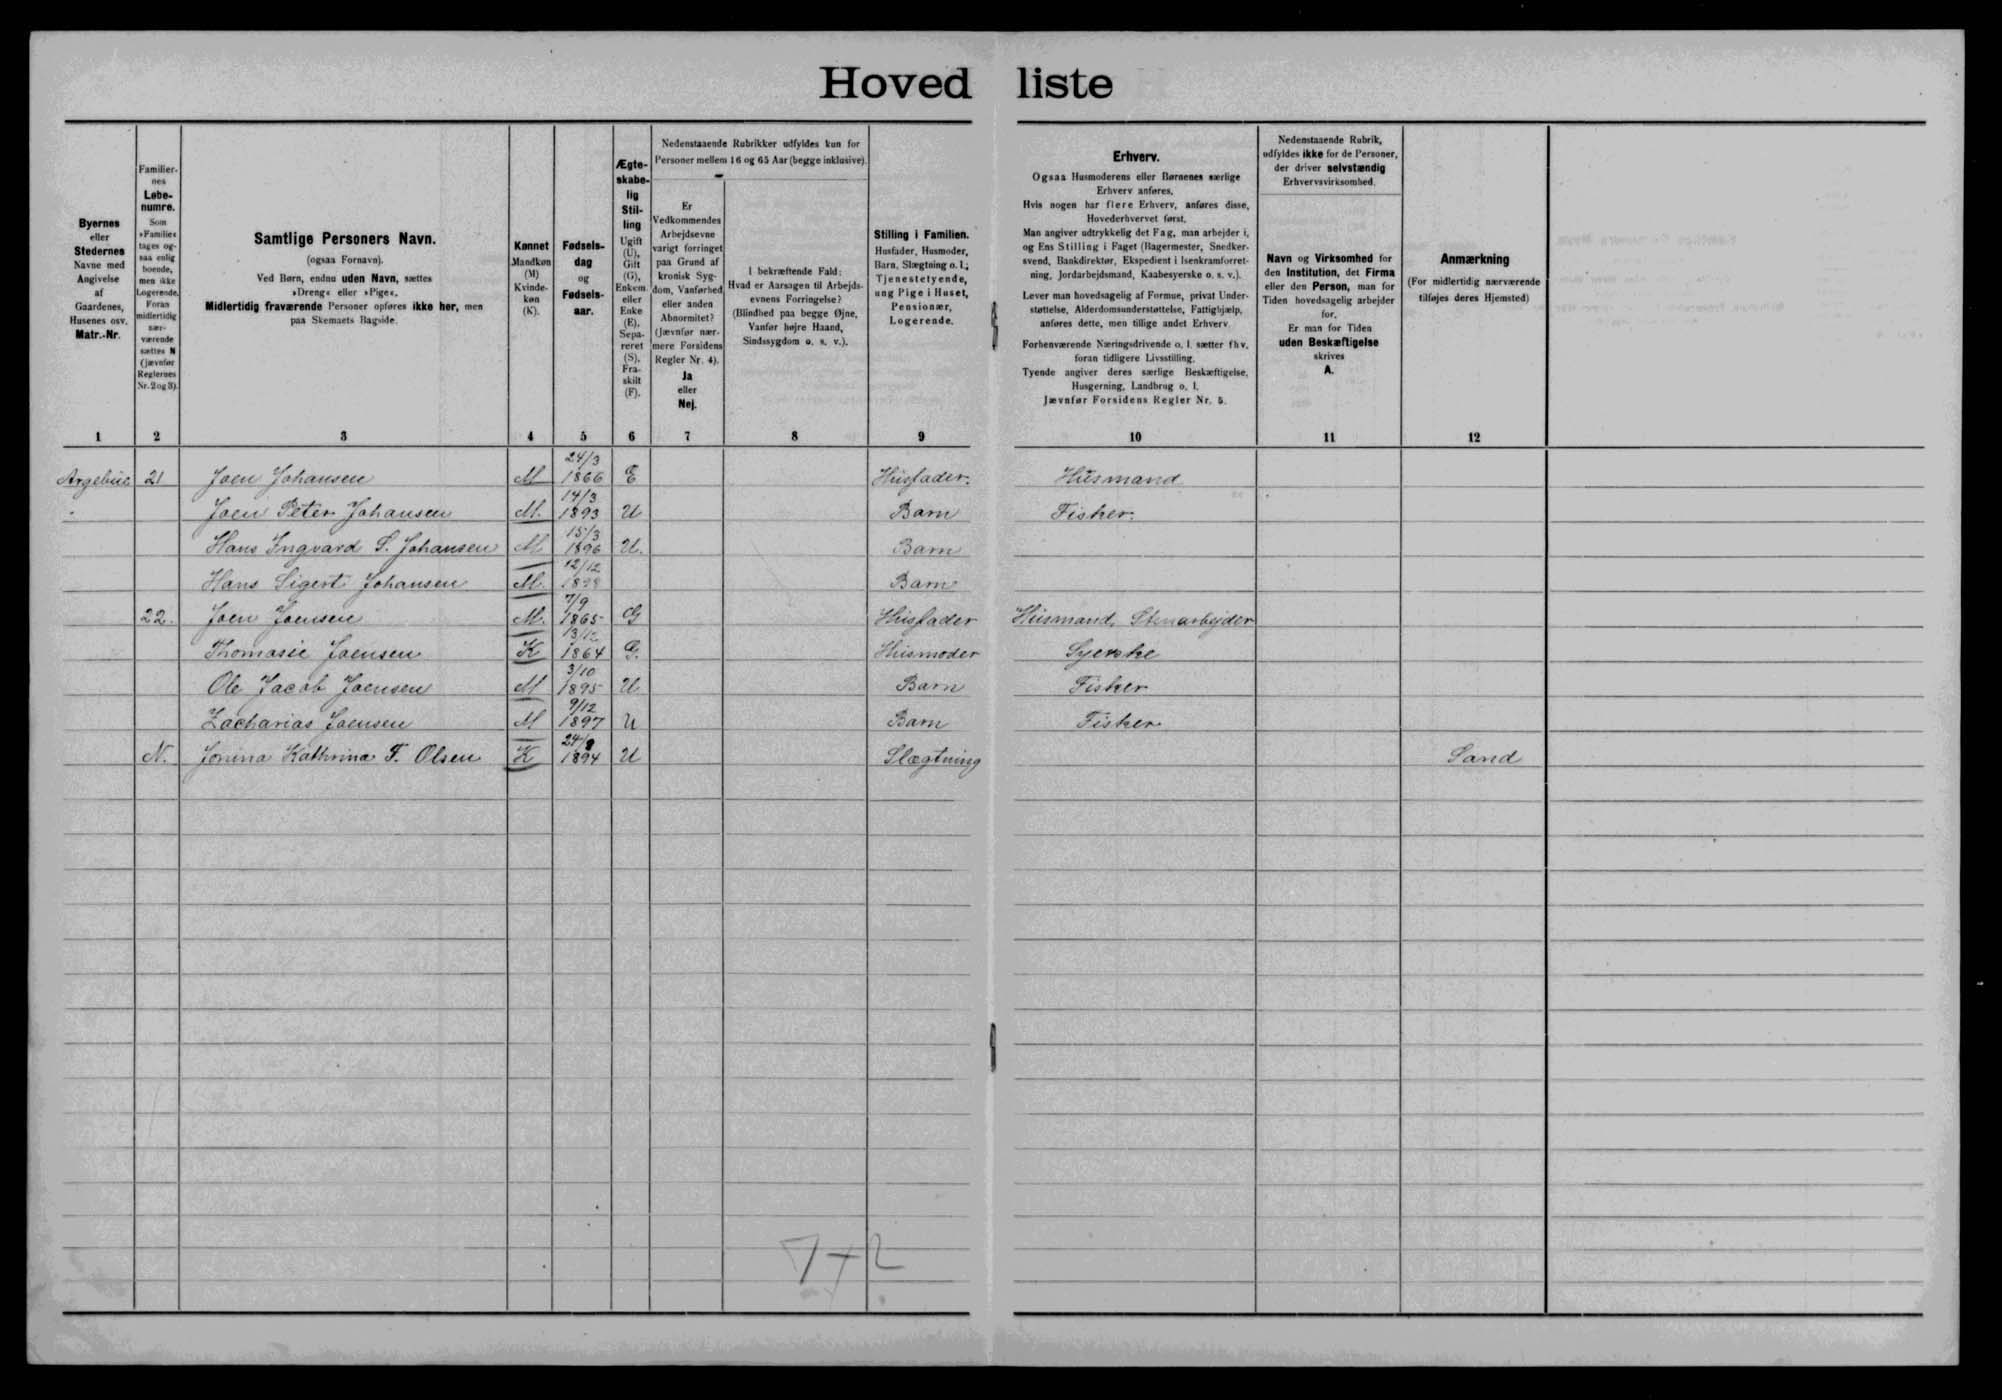 Hovedliste
Byernes
eller
Stedernes
Navne med
Angivelse
af
Gaardenes,
Husenes osv.
Matr.-Nr.
Familier-
nes
Løbe-
numre.
Som
»Familie«
tages og-
saa enlig
boende,
men ikke
Logerende.
Foran
midlertidig
nær-
værende
sættes N
(jævnfør
Reglernes
Nr. 2 og 3).
Samtlige Personers Navn.
(ogsaa Fornavn).
Ved Børn, endnu uden Navn, sættes
»Dreng« eller »Pige«.
Midlertidig fraværende Personer opføres ikke her, men
paa Skemaets Bagside.
Kønnet
Mandkøn
(M)
Kvinde-
køn
(K).
Fødsels-
dag
og
Fødsels-
aar.
Ægte-
skabe-
lig
Stil-
ling
Ugift
(U),
Gift
(G),
Enkem.
eller
Enke
(E),
Sepa-
reret
(S).
Fra-
skilt
(F).
Nedenstaaende Rubrikker udfyldes kun for
Personer mellem 16 og 65 Aar (begge inklusive).
Er
Vedkommendes
Arbejdsevne
varigt forringet
paa Grund af
kronisk Syg-
dom, Vanførhed
eller anden
Abnormitet?
(Jævnfør nær-
mere Forsidens
Regler Nr. 4).
Ja
eller
Nej.
I bekræftende Fald:
Hvad er Aarsagen til Arbejds-
evnens Forringelse?
(Blindhed paa begge Øjne,
Vanfør højre Haand,
Sindssygdom o. s. v.).
Stilling i Familien.
Husfader, Husmoder,
Barn, Slægtning o. l.;
Tjenestetyende,
ung Pige i Huset,
Pensionær,
Logerende.
Erhverv.
Ogsaa Husmoderens eller Børnenes særlige
Erhverv anføres.
Hvis nogen har flere Erhverv, anføres disse,
Hovederhvervet først.
Man angiver udtrykkelig det Fag, man arbejder i,
og Ens Stilling i Faget (Bagermester, Snedker-
svend, Bankdirektør, Ekspedient i Isenkramforret-
ning, Jordarbejdsmand, Kaabesyerske o. s. v.).
Lever man hovedsagelig af Formue, privat Under-
støttelse, Alderdomsunderstøttelse, Fattighjælp,
anføres dette, men tillige andet Erhverv.
Forhenværende Næringsdrivende o. l. sætter fhv.
foran tidligere Livsstilling.
Tyende angiver deres særlige Beskæftigelse,
Husgerning, Landbrug o. l.
Jævnfør Forsidens Regler Nr. 5.
Nedenstaaende Rubrik,
udfyldes ikke for de Personer,
der driver selvstændig
Erhvervsvirksomhed.
Navn og Virksomhed for
den Institution, det Firma
eller den Person, man for
Tiden hovedsagelig arbejder
for.
Er man for Tiden
uden Beskæftigelse
skrives
A.
Anmærkning
(For midlertidig nærværende
tilføjes deres Hjemsted)
1 2 3 4 5 6 7 8 9 10 11 12
Argebue 21 Joen Johansen M 24/3 1866 E Husfader. Husmand
Joen Peter Johansen M. 14/3 1893 U Barn Fisker.
Hans Ingvard S. Johansen M 15/3 1896 U. Barn
Hans Sigert Johansen M. 12/12 Barn
22. Joen Joensen M. 7/9 1865 G Husfader Husmand, Stenarbejder
Thomasie Joensen K 13/12 1864 G. Husmoder Syerske
Ole Jacob Joensen M 3/10 1895 U Barn Fisker
Zacharias Joensen M 9/12 1897 U Barn Fisker
N. Jonina Kathrina F. Olsen K 1894 U Slægtning Sand
7+2